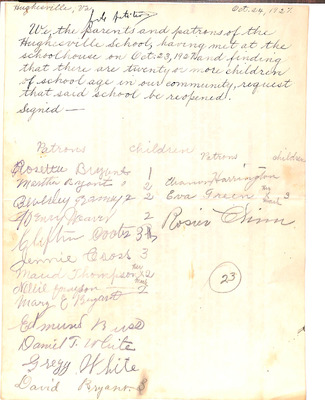 Hughesville, Va.
Oct. 24, 1927.
We, the parents and patrons of the
Hughesville School, having met at the
schoolhouse on Oct. 23, 1927 and finding
that there are twenty or more children
of school age in our community, request
that said school be reopened.
Signed —
Patrons Children Patrons Children
Rosetta Bryant 1
Martha Bryant 2
Beverley 2 2
Henry 2
Clifton 3
Jennie Cross 3
Maud Thompson 2
Nellie
Mary E Bryant
Edmund
Daniel T. White
Gregg White
David Bryant 3
Harrington
Eva Green 3
Rosier
23